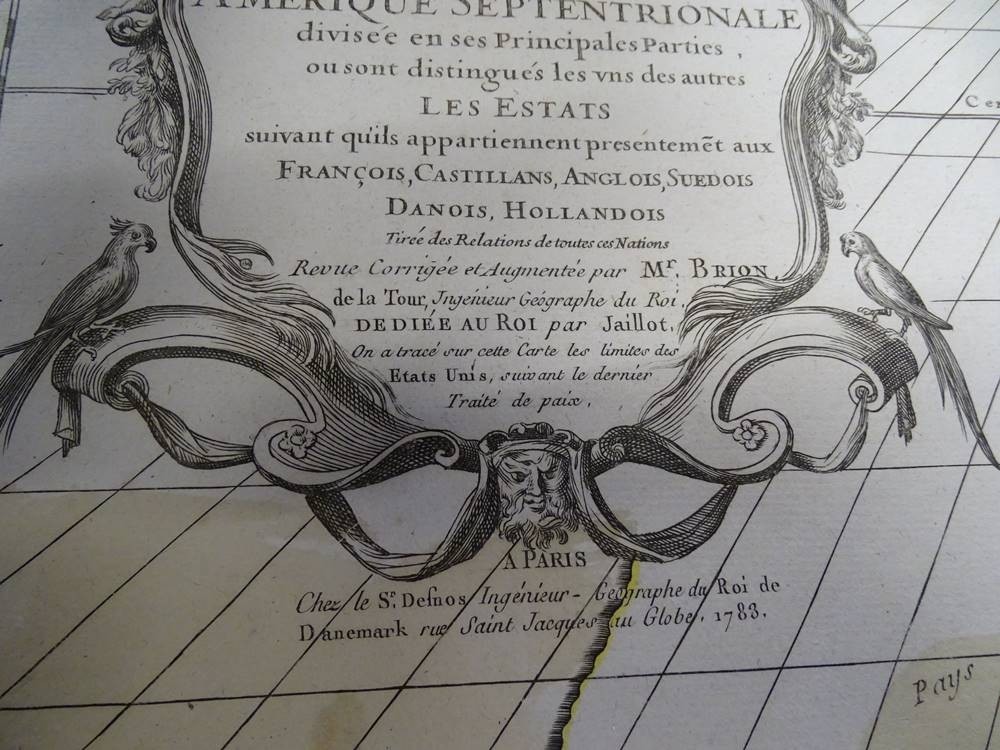 AMERIQUE SEPTENTRIONALE
diviseé en ses Principales Parties,
ou sont distingués les vns des autres
LES ESTATS
suivant qu'ils appartiennent presentemẽt aux
FRANÇOIS, CASTILLANS, ANGLOIS, SUEDOIS
DANOIS, HOLLANDOIS
Tirée des Relations de toutes ces Nations
Revue Corrigée et Augmentée par Mr. BRION
de la Tour, Ingenieur Geógraphe du Roi.
DEDIÉE AU ROI par Jaillot.
On a tracé sur cette Carte les limites des
Etats Unis, suivant le dernier
Traité de paix.
A PARIS
Chez le Sr. Desnos Ingénieur-Geographe du Roi de
Danemark rue Saint Jacques au Globe. 1783.
Pays